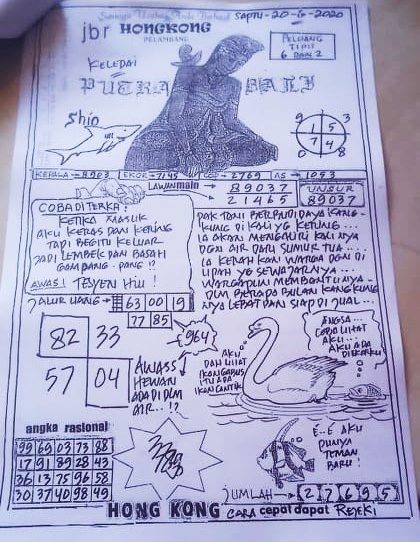 Semoga Untung Anda Berhasil
SAPTU-20-6-2020
jbr HONGKONG
PALEMBANG
PELUANG
TIPIS
6 DAN 2
KELEDAI
PUTRA BALI
Shio
9 3
1 5
7 4
0 8
KEPALA-8903 EKOR-7145 COP-2769 AS-1053
LAWAN main → 89037
21465
UNSUR
89037
COBA DITERKA!
KETIKA MASUK
AKU KERAS DAN KERING
TAPI BEGITU KELUAR
JADI LEMBEK DAN BASAH
GAMPANG-PANG !?
AWAS! TESYEN Hiii !
PAK TANI BERBUDIDAYA KANG-
KUNG DI KALI YG KETUNG...
IA AKAN MENGALIRI KALI NYA
DGN AIR DARI SUMUR TUA...
IA KERAHKAN WARGA DGN DI
UPAH YG SEWAJARNYA...
WARGAPUN MEMBANTUNYA-
DLM BERAPA BULAN KANGKUNG
NYA LEBAT DAN SIAP DI JUAL...
JALUR UANG → 63 00 19
77 85
82 33
57 04
964
AWASS
HEWAN
ADA DI DLM
AIR..!?
AKU
DAH LIHAT
IKAN GABUS
ITU ADA
IKAN CANTIK
ANGSA...
COBA LIHAT
AKU...
AKU ADA
DIEKORKU
angka rasional
99 69 03 73 88
17 91 89 28 43
36 13 75 96 58
30 37 40 98 49
E..E AKU
PUNYA
TEMAN
BARU !
JUMLAH → 2 7 6 9 5
HONG KONG CARA cepat dapat REJEKI